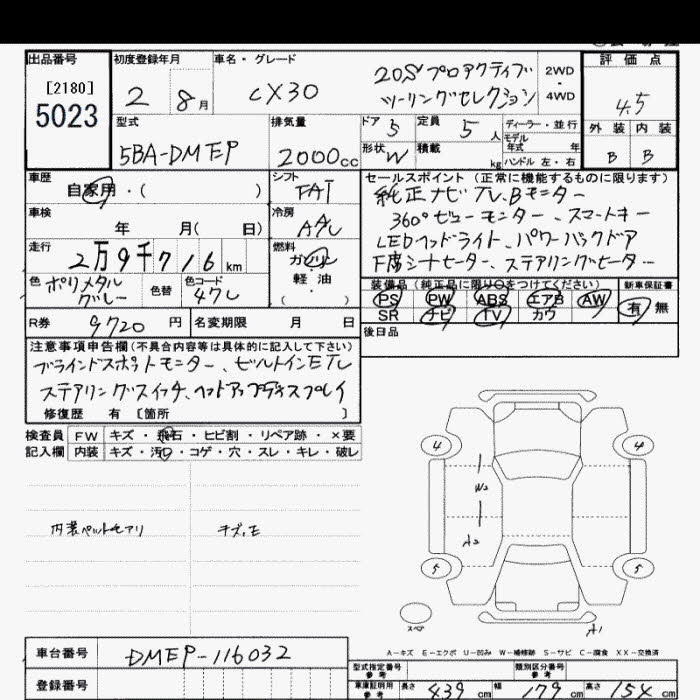 出品番号
[2180]
5023
初度登録年月
2 8月
車名・グレード
CX30
20S プロアクティブ
ツーリングセレクション
2WD
4WD
評価点
4.5
外装 内装
B B
型式
5BA-DMEP
排気量
2000cc
ドア 5
定員 5人
ディーラー・並行
モデル年式 年
形状 W
積載 kg
ハンドル 左・右
車歴
自家用・( )
シフト
FAT
車検
年 月( 日)
冷房
AAC
走行
2万9千716km
燃料
ガソリン
軽油
( )
色 ポリメタルグレー
色替
色コード
47C
R券 9720円
名変期限 月 日
セールスポイント(正常に機能するものに限ります)
純正ナビ TV、Bモニター
360°ビューモニター、スマートキー
LEDヘッドライト、パワーバックドア
F席シートヒーター、ステアリングヒーター
装備品(純正品に限り○をつけてください)
新車保証書
PS PW ABS エアB AW
SR ナビ TV カワ
有 無
後日品
注意事項申告欄(不具合内容等は具体的に記入して下さい)
ブラインドスポットモニター、ビルトインETC
ステアリングスイッチ、ヘッドアップディスプレイ
修復歴 有 [箇所 ]
検査員記入欄
FW キズ・飛石・ヒビ割・リペア跡・×要
内装 キズ・汚れ・コゲ・穴・スレ・キレ・破レ
内装ペットモアリ
キズ、E
4 4
W2
A2
5 5
スペア
A1
A-キズ E-エクボ U-凹み W-補修跡 S-サビ C-腐食 XX-交換済
車台番号
DMEP-116032
登録番号
型式指定番号
参考
類別区分番号
参考
車庫証明用
参考
長さ 439cm
幅 179cm
高さ 154cm